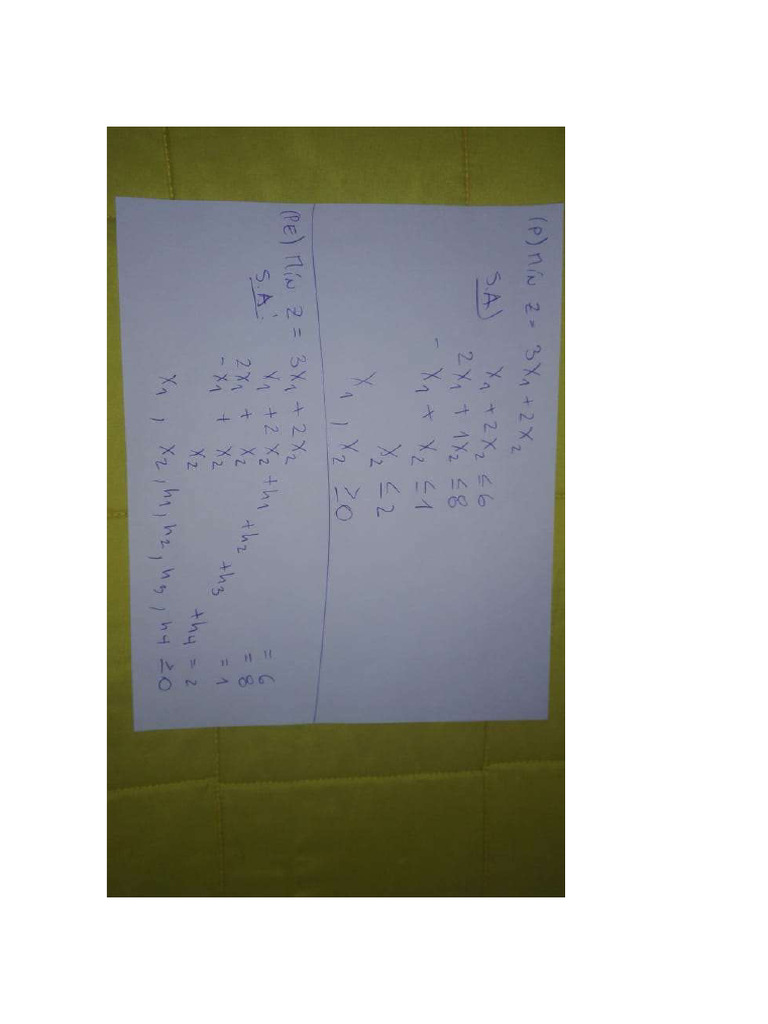 (P) Mín z = 3x₁ + 2x₂
S.A)
x₁ + 2x₂ ≤ 6
2x₁ + 1x₂ ≤ 8
- x₁ + x₂ ≤ 1
x₂ ≤ 2
x₁ , x₂ ≥ 0
(PE) Mín z = 3x₁ + 2x₂
S.A:
x₁ + 2x₂ + h₁ = 6
2x₁ + x₂ + h₂ = 8
-x₁ + x₂ + h₃ = 1
x₂ + h₄ = 2
x₁ , x₂ , h₁ , h₂ , h₃ , h₄ ≥ 0